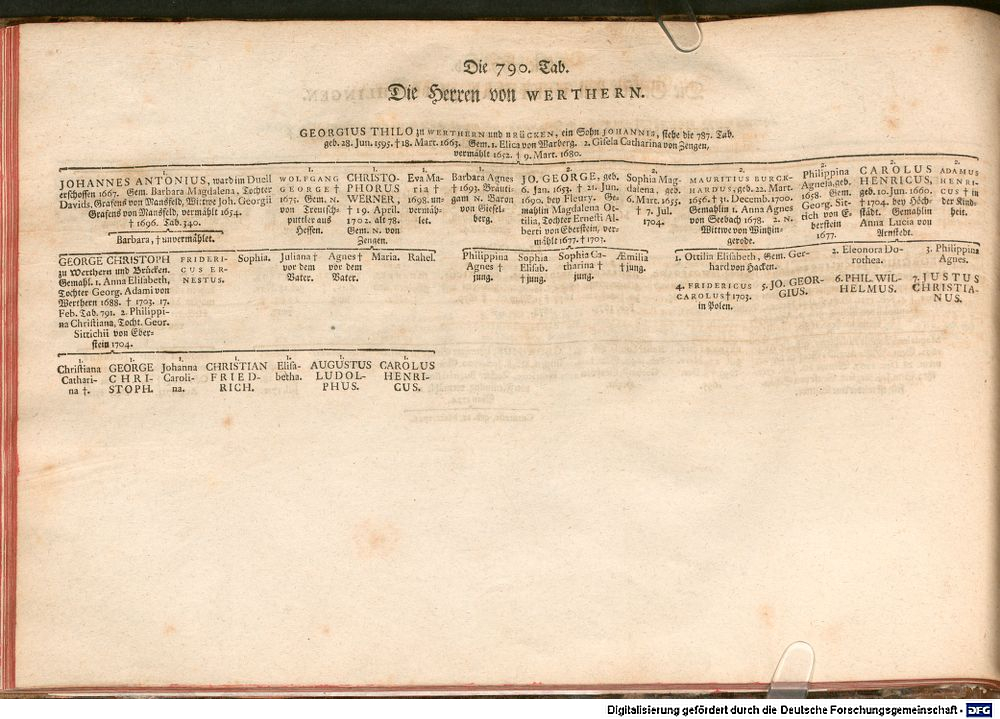 Die 790. Tab.
Die Herren von WERTHERN.
GEORGIUS THILO zu WERTHERN und BRÜCKEN, ein Sohn JOHANNIS, siehe die 787. Tab.
geb. 28. Jun. 1595. † 18. Mart. 1663. Gem. 1. Elica von Warberg. 2. Gisela Catharina von Zengen,
vermählt 1652. † 9. Mart. 1680.
1.
JOHANNES ANTONIUS, ward im Duell
erschossen 1667. Gem. Barbara Magdalena, Tochter
Davids, Grafens von Mansfeld, Wittwe Joh. Georgii
Grafens von Mansfeld, vermählt 1654.
† 1696. Tab. 340.
Barbara, † unvermählet.
1.
WOLFGANG
GEORGE †
1675. Gem. N.
von Trensch-
püttler aus
Hessen.
1.
CHRISTO-
PHORUS
WERNER,
† 19. April.
1702. alt 78.
Gem. N. von
Zengen.
1.
Eva Ma-
ria †
1698. un-
vermäh-
let.
1.
Barbara Agnes
† 1693. Bräuti-
gam N. Baron
von Giesel-
berg.
2.
JO. GEORGE, geb.
6. Jan. 1653. † 21. Jun.
1690. bey Fleury. Ge-
mahlin Magdalena Ot-
tilia, Tochter Ernesti Al-
berti von Eberstein, ver-
mählt 1677. † 1703.
2.
Sophia Mag-
dalena, geb.
6. Mart. 1655.
† 7. Jul.
1704.
2.
MAURITIUS BURCK-
HARDUS, geb. 22. Mart.
1656. † 31. Decemb. 1700.
Gemahlin 1. Anna Agnes
von Seebach 1678. 2. N.
Wittwe von Wintzin-
gerode.
2.
Philippina
Agneta, geb.
1658. Gem.
Georg. Sit-
tich von E-
berstein
1677.
2.
CAROLUS
HENRICUS,
geb. 10. Jun. 1660.
† 1704. bey Höch-
städt. Gemahlin
Anna Lucia von
Arnstedt.
2.
ADAMUS
HENRI-
CUS † in
der Kind-
heit.
GEORGE CHRISTOPH
zu Werthern und Brücken.
Gemahl. 1. Anna Elisabeth,
Tochter Georg. Adami von
Werthern 1688. † 1703. 17.
Feb. Tab. 791. 2. Philippi-
na Christiana, Tocht. Geor.
Sittichii von Eber-
stein 1704.
FRIDERI-
CUS ER-
NESTUS.
Sophia.
Juliana †
vor dem
Vater.
Agnes †
vor dem
Vater.
Maria.
Rahel.
Philippina
Agnes †
jung.
Sophia
Elisab.
† jung.
Sophia Ca-
tharina †
jung.
Æmilia
† jung.
1. Ottilia Elisabeth, Gem. Ger-
hard von Hacken.
2. Eleonora Do-
rothea.
3. Philippina
Agnes.
4. FRIDERICUS
CAROLUS † 1703.
in Polen.
5. JO. GEOR-
GIUS.
6. PHIL. WIL-
HELMUS.
7. JUSTUS
CHRISTIA-
NUS.
1.
Christiana
Cathari-
na †.
1.
GEORGE
CHRI-
STOPH.
1.
Johanna
Caroli-
na.
1.
CHRISTIAN
FRIED-
RICH.
1.
Elisa-
betha.
1.
AUGUSTUS
LUDOL-
PHUS.
1.
CAROLUS
HENRI-
CUS.
Digitalisierung gefördert durch die Deutsche Forschungsgemeinschaft - DFG